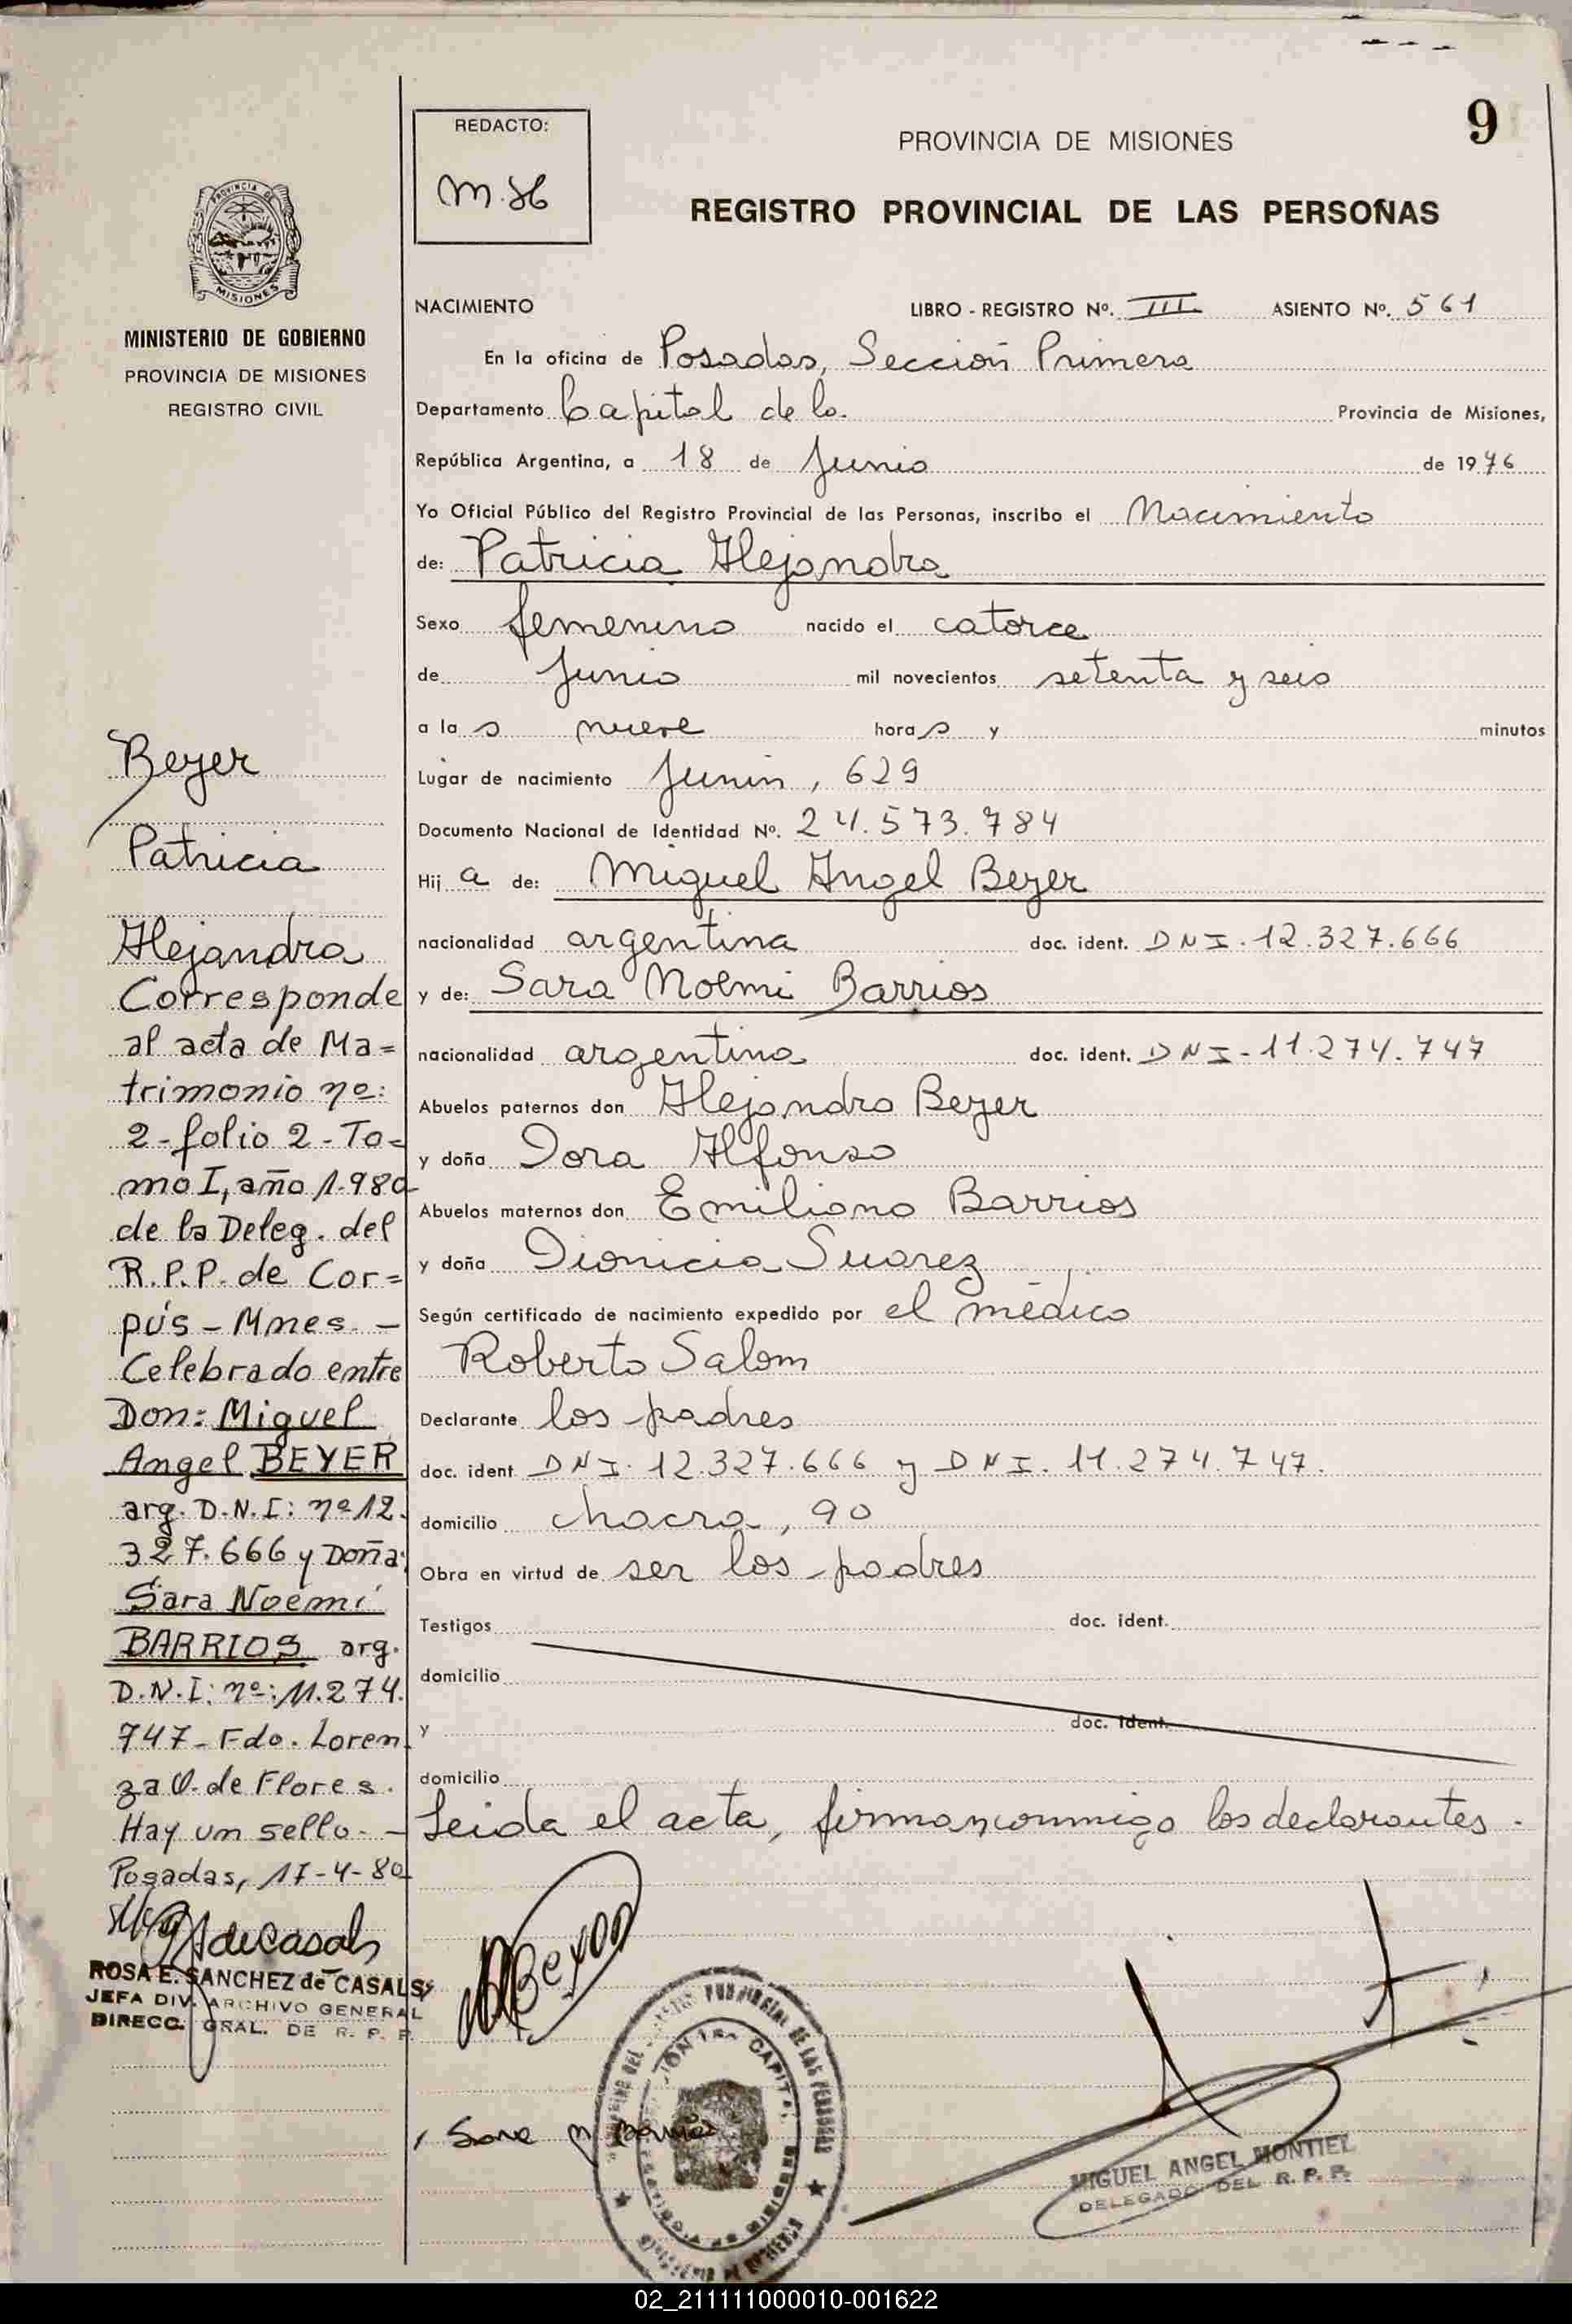 9
REDACTO:
M.H
PROVINCIA DE MISIONES
REGISTRO PROVINCIAL DE LAS PERSONAS
PROVINCIA DE
MISIONES
MINISTERIO DE GOBIERNO
PROVINCIA DE MISIONES
REGISTRO CIVIL
NACIMIENTO LIBRO - REGISTRO Nº. III ASIENTO Nº. 561
En la oficina de Posadas, Sección Primera
Departamento Capital de la Provincia de Misiones,
República Argentina, a 18 de Junio de 1976
Yo Oficial Público del Registro Provincial de las Personas, inscribo el Nacimiento
de: Patricia Alejandra
Sexo femenino nacido el catorce
de Junio mil novecientos setenta y seis
a la s nueve hora s y minutos
Lugar de nacimiento Junín, 629
Documento Nacional de Identidad Nº. 24.573.784
Hij a de: Miguel Angel Beyer
nacionalidad argentina doc. ident. DNI. 12.327.666
y de: Sara Noemi Barrios
nacionalidad argentina doc. ident. DNI-11.274.747
Abuelos paternos don Alejandro Beyer
y doña Dora Alfonso
Abuelos maternos don Emiliano Barrios
y doña Dionicia Suarez
Según certificado de nacimiento expedido por el médico
Roberto Salom
Declarante los padres
doc. ident DNI. 12.327.666 y DNI. 11.274.747.
domicilio chacra, 90
Obra en virtud de ser los padres
Testigos doc. ident.
domicilio
y doc. ident.
domicilio
Leida el acta, firman conmigo los declarantes.
Beyer
Patricia
Alejandra
Corresponde
al acta de Ma=
trimonio nº:
2-folio 2-To=
mo I, año 1.980
de la Deleg. del
R.P.P. de Cor=
pús - Mnes. -
Celebrado entre
Don: Miguel
Angel BEYER
arg. D.N.I: nº 12.
327.666 y Doña:
Sara Noemí
BARRIOS arg.
D.N.I: nº: 11.274.
747- Fdo. Loren
za V. de Flores.
Hay un sello. -
Posadas, 17-4-80
ROSA E. SANCHEZ de CASALS
JEFA DIV. ARCHIVO GENERAL
DIRECC. GRAL. DE R. P. P.
Sara N Barrios
MIGUEL ANGEL MONTIEL
DELEGADO DEL R. P. P.
02_211111000010-001622